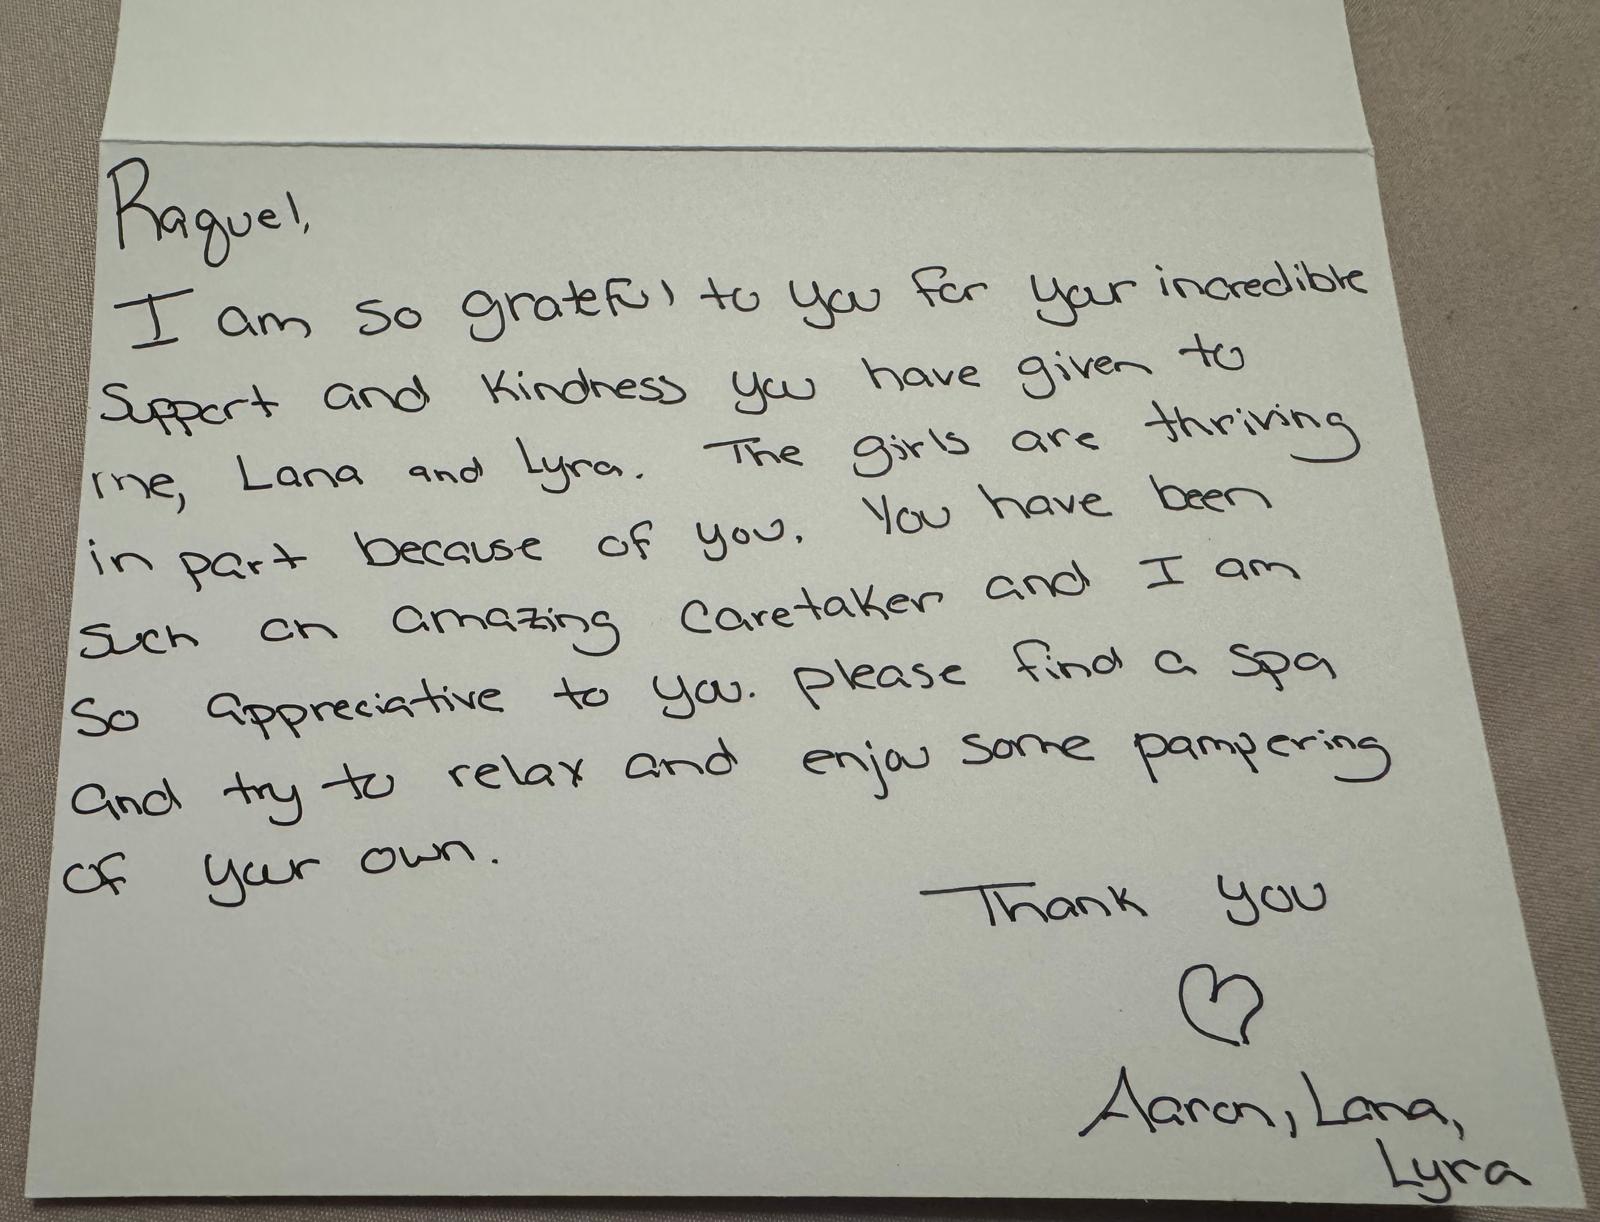 Raquel,
I am so grateful to you for your incredible
support and kindness you have given to
me, Lana and Lyra. The girls are thriving
in part because of you. You have been
such an amazing caretaker and I am
so appreciative to you. please find a spa
and try to relax and enjoy some pampering
of your own.
Thank you
♡
Aaron, Lana,
Lyra